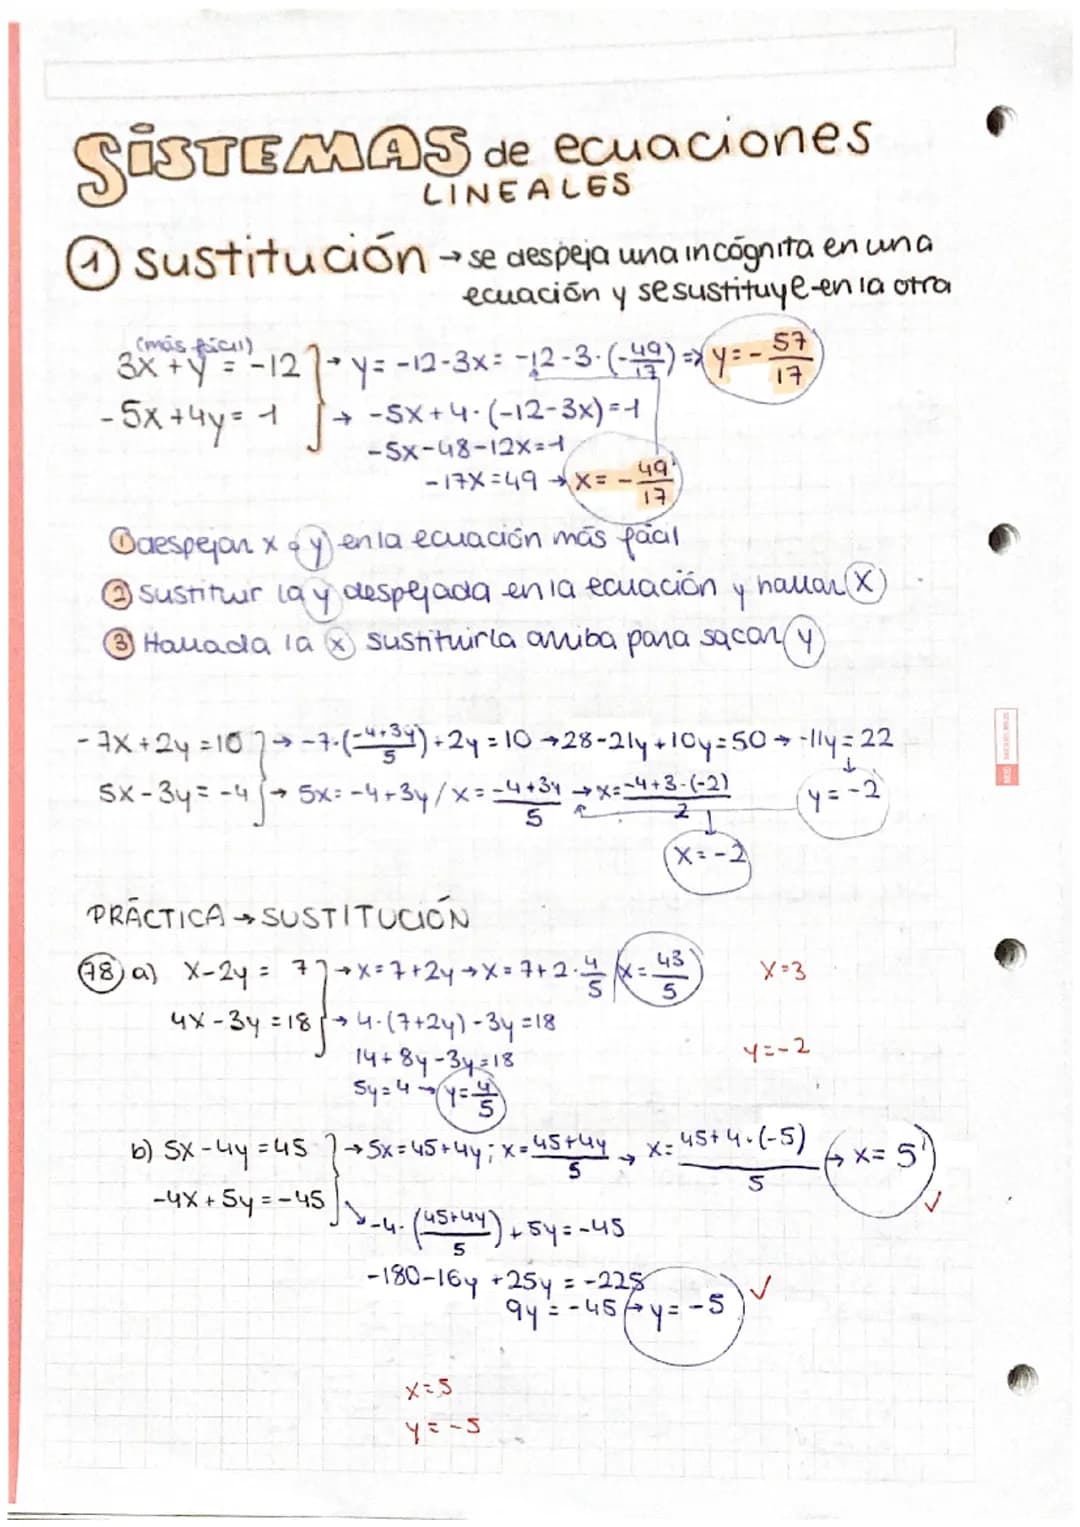 SiSTEMAS de ecuaciones
LINEALES
① sustitución → se despeja una incógnita en una
ecuación y se sustituye en la otra
(más fácil)
3x + y = -12 → y = -12-3x = -12-3·(-49/17) => y = -57/17
-5x+4y = -1 → -5x+4·(-12-3x)=-1
-5x-48-12x=-1
-17x=49 → x = -49/17
① despejar x o y en la ecuación más fácil
② Sustituir la y despejada en la ecuación y hallar x
③ Hallada la x sustituirla arriba para sacar y
-7x+2y=10 → -7·(-4+3y/5)+2y=10 → 28-21y+10y=50 → -11y=22
5x-3y=-4 → 5x=-4+3y / x=-4+3y/5 → x=-4+3·(-2)/2 y=-2
x=-2
PRÁCTICA → SUSTITUCIÓN
78 a) x-2y = 7 → x=7+2y → x=7+2·4/5 x=43/5 x=3
4x-3y=18 → 4·(7+2y)-3y=18
y=-2
14+8y-3y=18
5y=4 → y=4/5
b) 5x-4y=45 → 5x=45+4y; x=45+4y/5 → x=45+4·(-5)/5 → x=5 ✓
-4x+5y=-45
-4·(45+4y/5)+5y=-45
-180-16y+25y=-225
9y=-45 → y=-5 ✓
x=5
y=-5